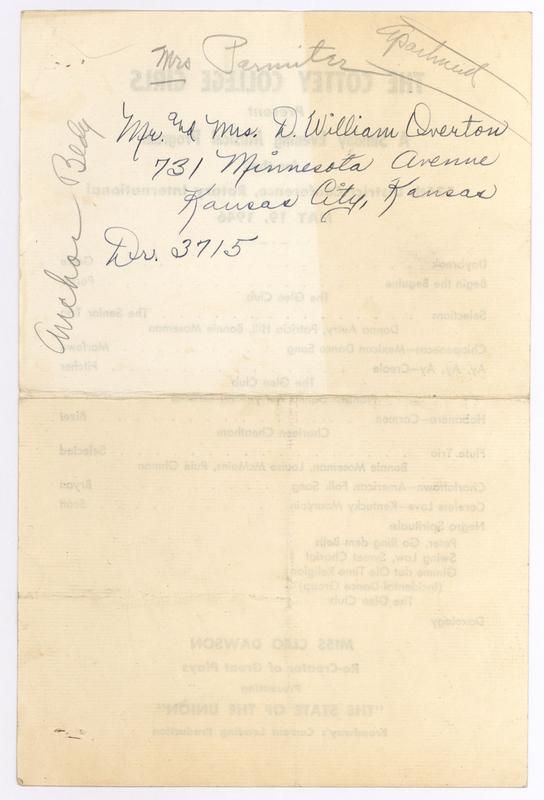 Mrs Parmiter
Apartment
Mr. and Mrs. D. William Overton
731 Minnesota Avenue
Kansas City, Kansas
Dr. 3715
Anchor Bldg
THE COTTEY COLLEGE GIRLS
Present
A Sunday Evening Musical Program
MAY 19, 1946
Daybreak
Begin the Beguine
The Glee Club
Selections The Senior Trio
Donna Autry, Patricia Hill, Bonnie Moseman
Chiapanecas—Mexican Dance Song
Ay, Ay, Ay—Creole Pitcher
The Glee Club
Habanera—Carmen Bizet
Charleen Cheatham
Flute Trio Selected
Bonnie Moseman, Louise McMains,
Charlottown—American Folk Song Bryan
Careless Love—Kentucky Mountain Scott
Negro Spirituals
Peter, Go Ring dem Bells
Swing Low, Sweet Chariot
Gimme dat Ole Time Religion
(Incidental Dance Group)
The Glee Club
Doxology
MISS CLEO DAWSON
Re-Creator of Great Plays
Presenting
"THE STATE OF THE UNION"
Broadway's Current Leading Production